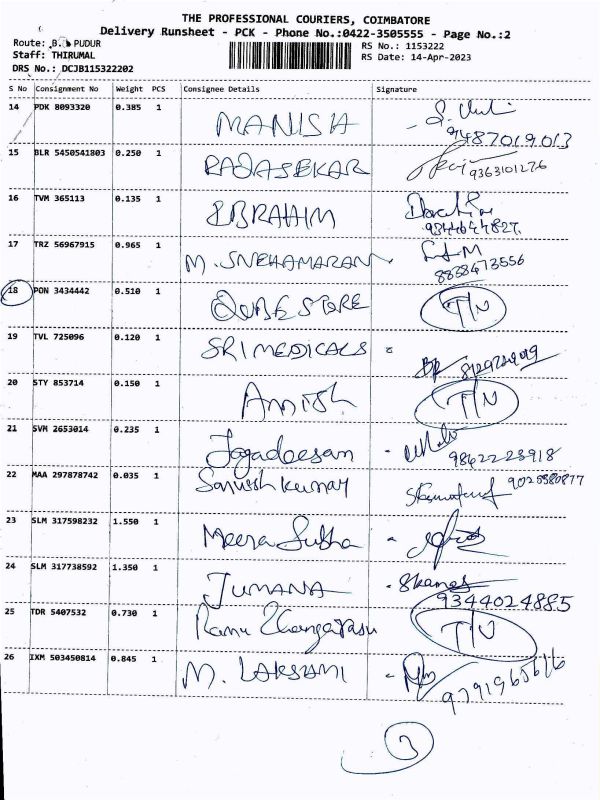 THE PROFESSIONAL COURIERS, COIMBATORE
Delivery Runsheet - PCK - Phone No.:0422-3505555 - Page No.:2
Route: B. PUDUR RS No.: 1153222
Staff: THIRUMAL RS Date: 14-Apr-2023
DRS No.: DCJB115322202
S No Consignment No Weight PCS Consignee Details Signature
14 PDK 8093320 0.385 1 MANISH
9487019013
15 BLR 5450541803 0.250 1 RAJASEKAR 9363101276
16 TVM 365113 0.135 1 IBRAHIM
9344644827
17 TRZ 56967915 0.965 1 M. SNEHAMARAN
8838473556
18 PON 3434442 0.510 1 QUBE STORE T/N
19 TVL 725096 0.120 1 SRI MEDICALS
20 STY 853714 0.150 1 Amish T/N
21 SVM 2653014 0.235 1 Jagadeesan
9862223918
22 MAA 297878742 0.035 1 Sanush Kumar
23 SLM 317598232 1.550 1 Meera Subha
24 SLM 317738592 1.350 1 JUMANA
9344024885
25 TDR 5407532 0.730 1 Ramu Thangarasu T/N
26 IXM 503450814 0.845 1 M. LAKSAMI
9791965616
3